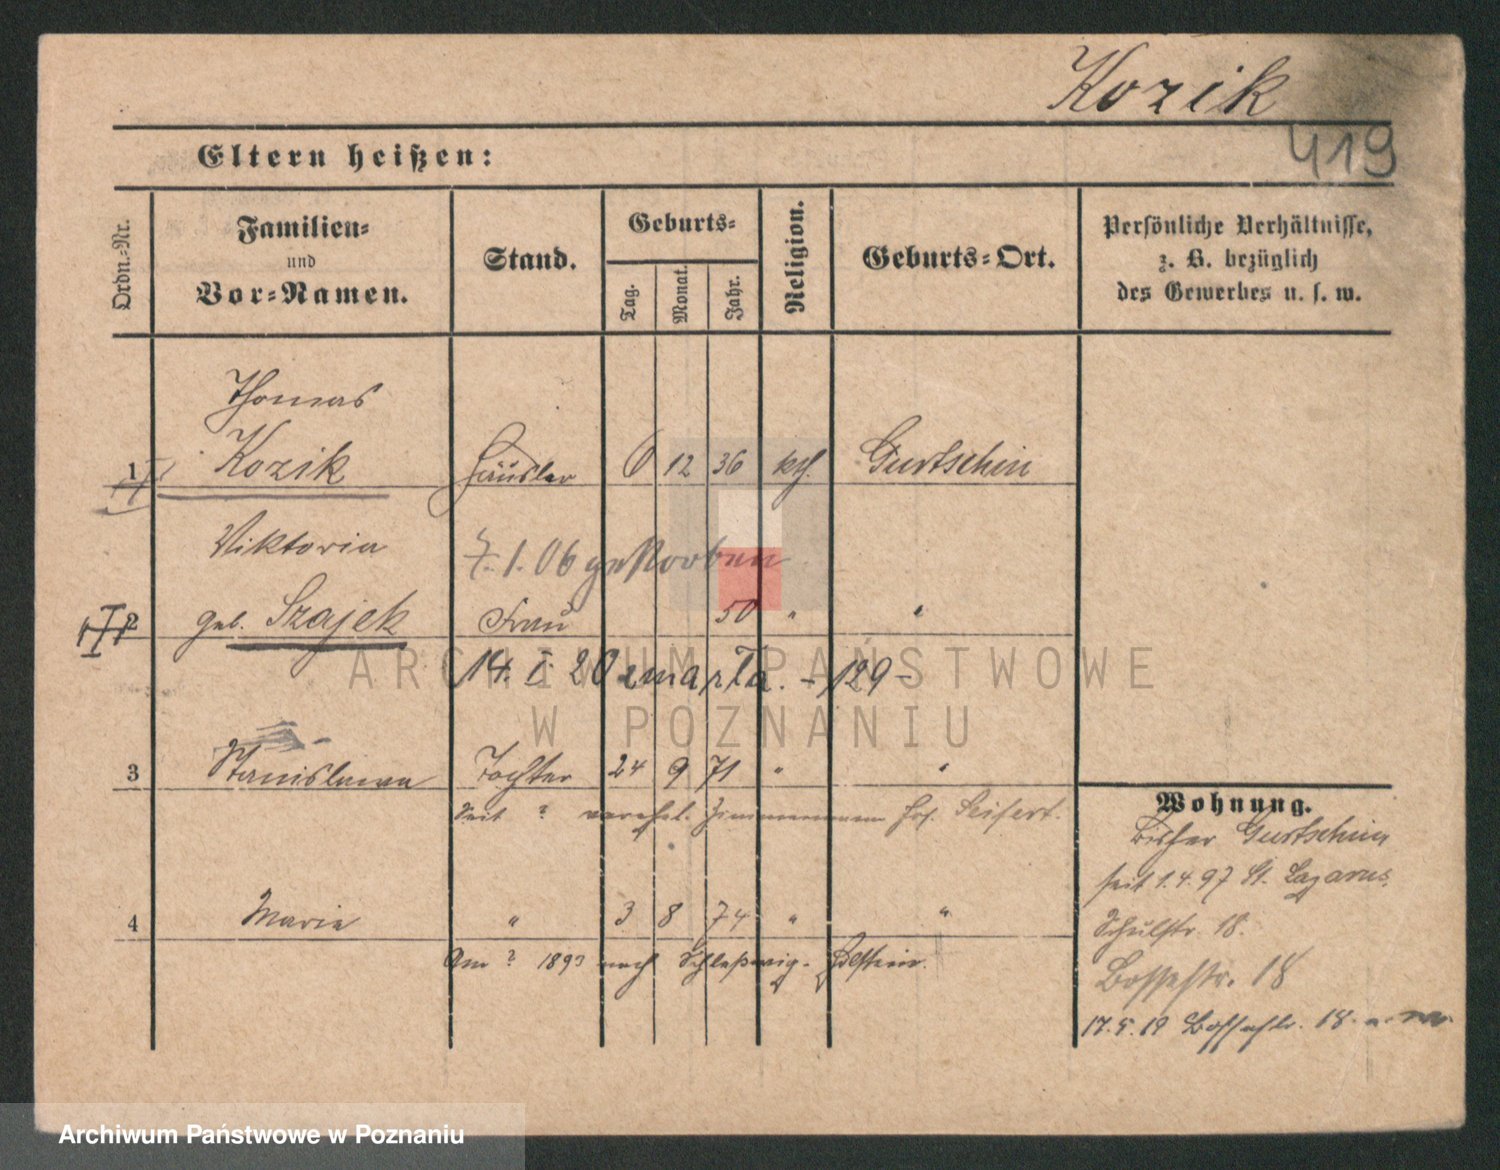 Kozik
419
Eltern heißen:
Ordn.-Nr.
Familien-
und
Vor-Namen.
Stand.
Geburts-
Tag.
Monat.
Jahr.
Religion.
Geburts-Ort.
Persönliche Verhältnisse,
z. B. bezüglich
des Gewerbes u. s. w.
Thomas
1 Kozik Häusler 6 12 36 kth. Gurtschin
7.1.06 gestorben
Viktoria
2 geb. Szajek Frau 50 " "
14. I. 20 zmarła. - 129 -
3 Stanislawa Tochter 24 9 71 " "
Seit ? verehel. Zimmermann Jos. Seifert.
4 Marie " 3 8 74 " "
Am ? 1893 nach Schleswig-Holstein.
Wohnung.
bisher Gurtschin
seit 1.4.97 St. Lazarus,
Schulstr. 18.
Bossestr. 18
17.5.19 Bossestr. 18.
ARCHIWUM PAŃSTWOWE
W POZNANIU
Archiwum Państwowe w Poznaniu